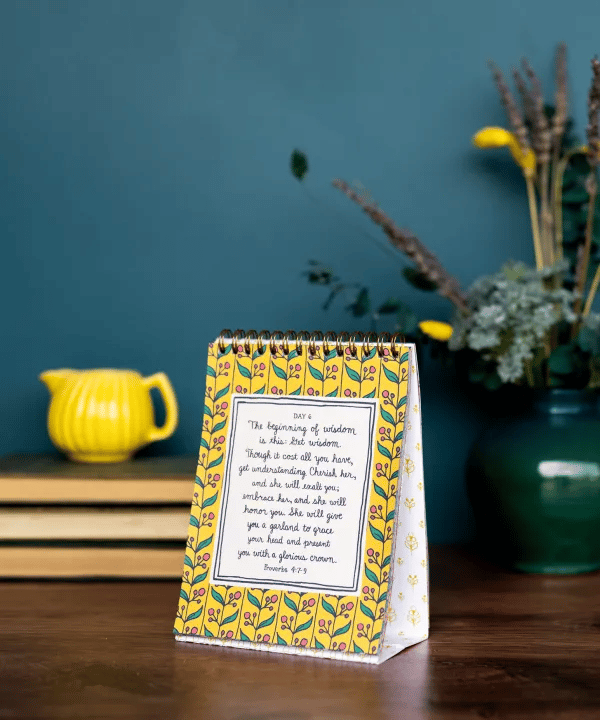 DAY 6
The beginning of wisdom
is this: Get wisdom.
Though it cost all you have,
get understanding Cherish her,
and she will exalt you;
embrace her, and she will
honor you. She will give
you a garland to grace
your head and present
you with a glorious crown.
Proverbs 4:7-9